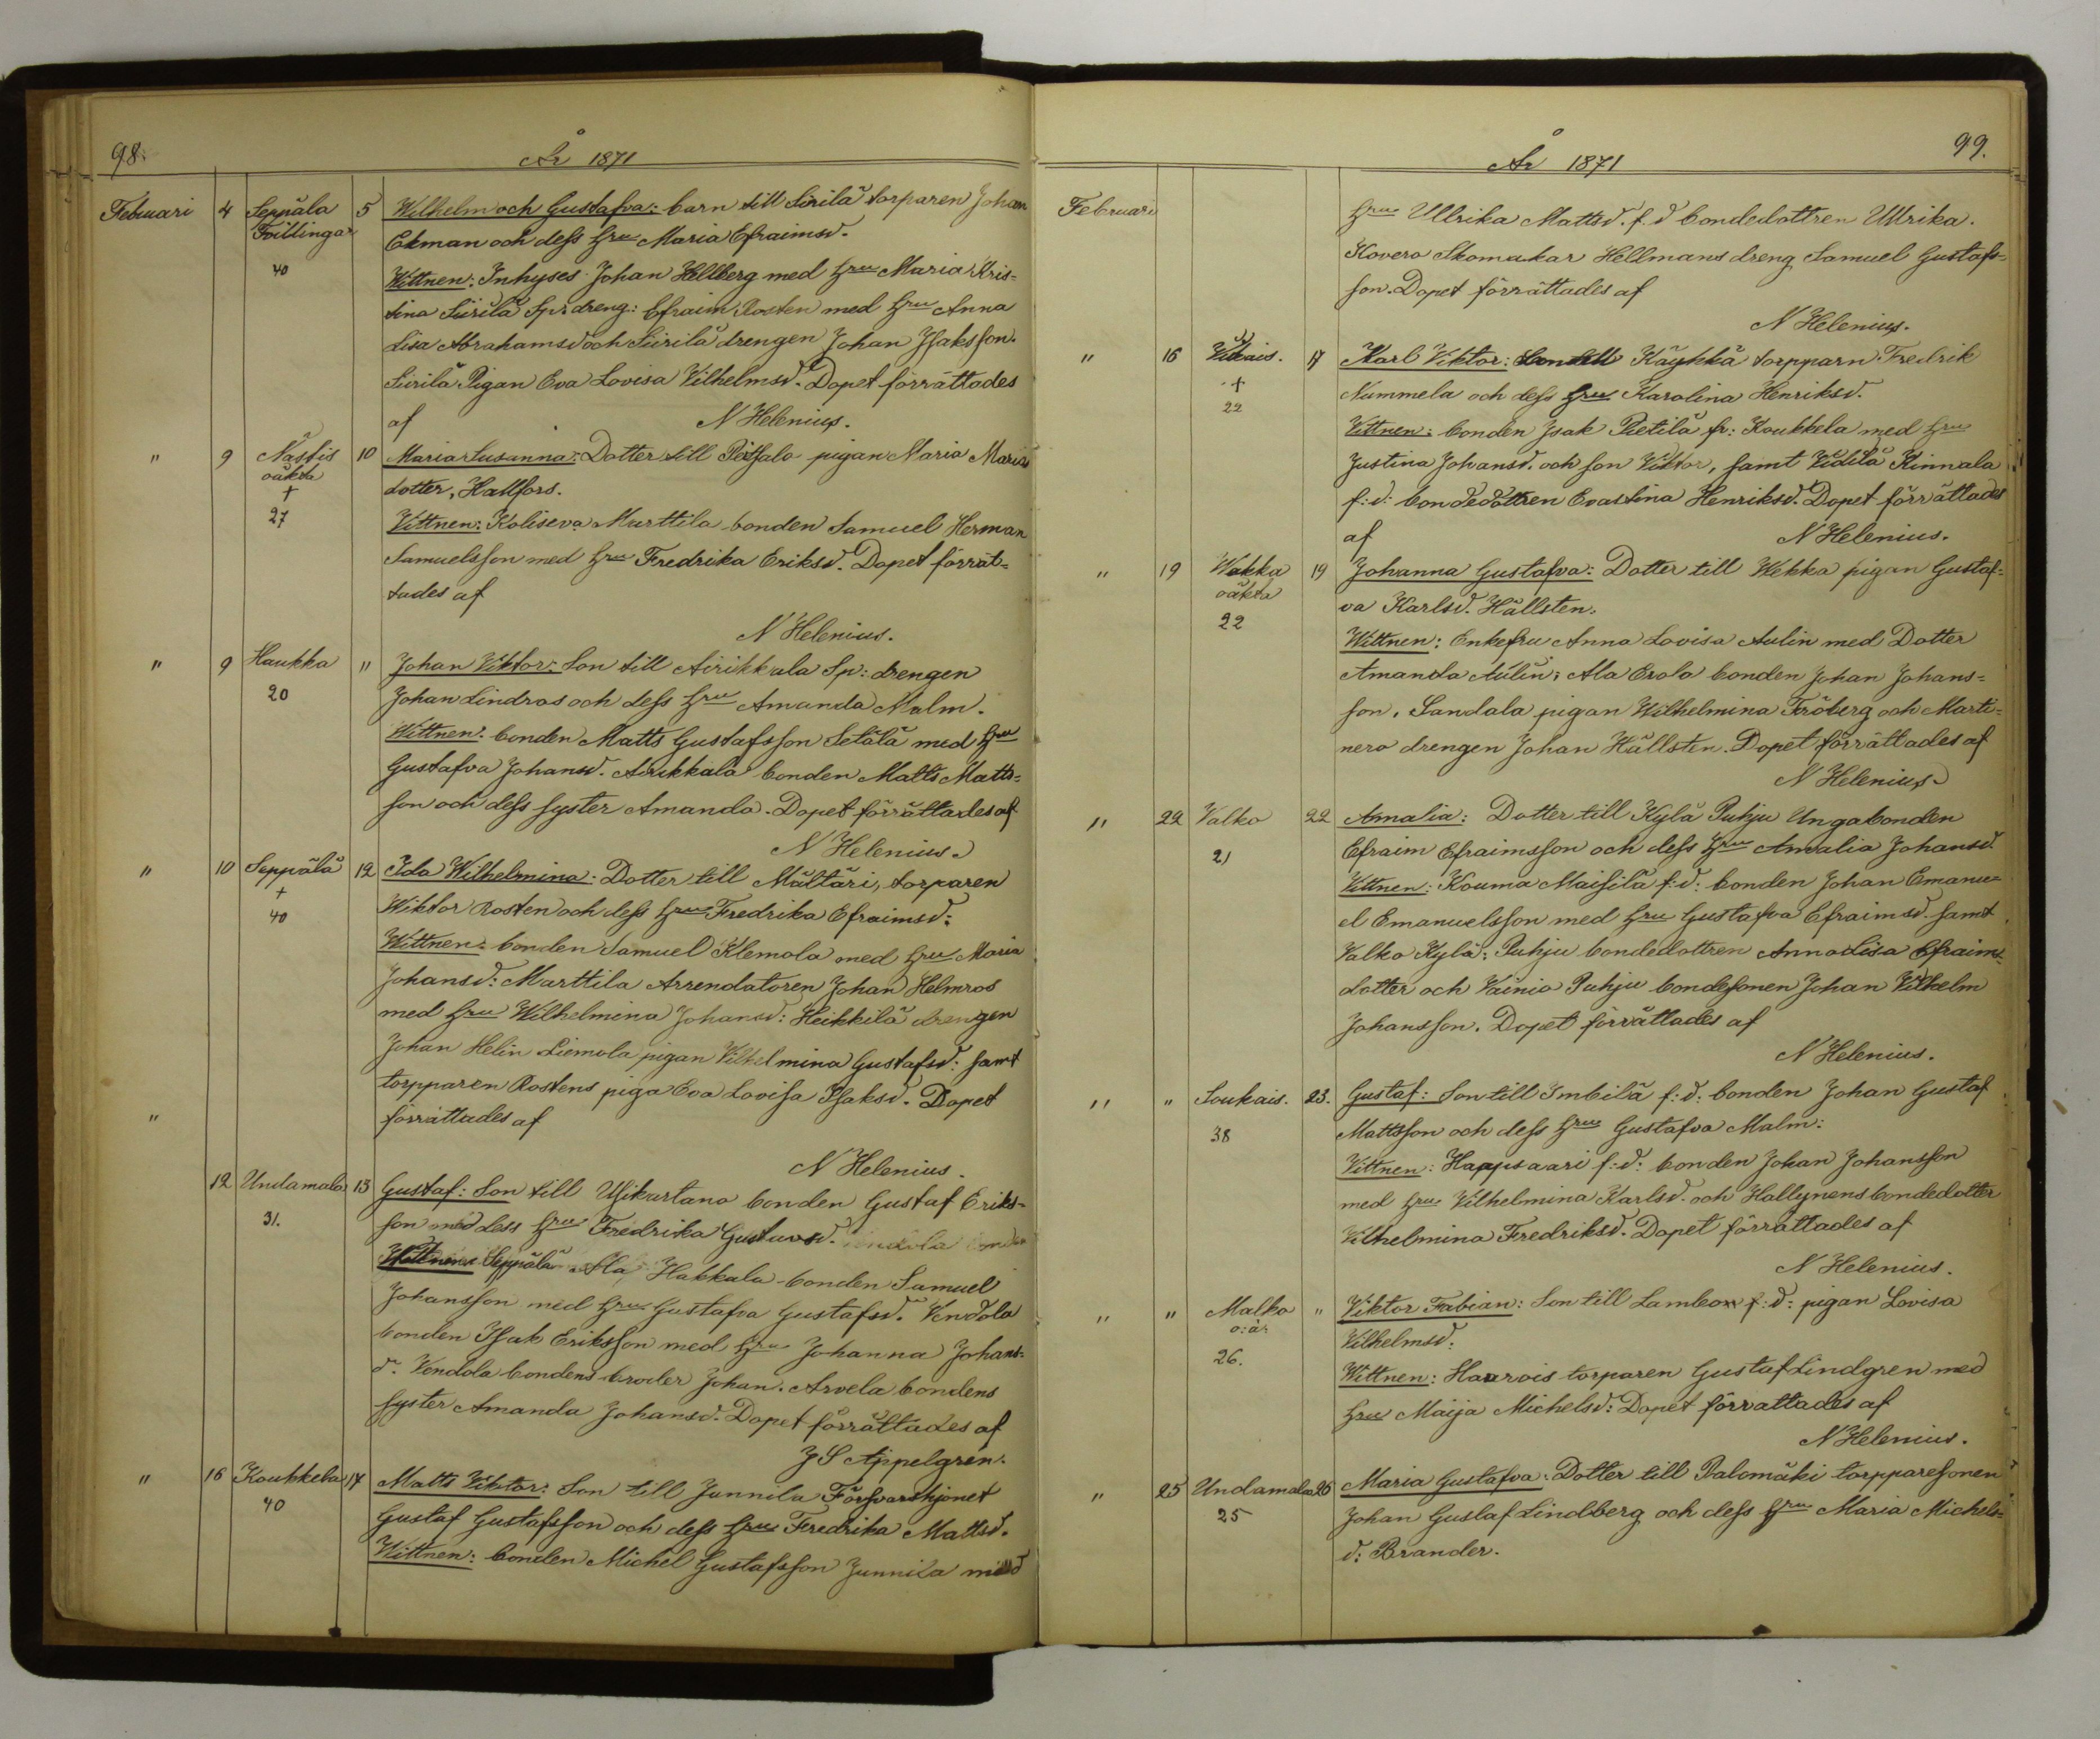 98.
År 1871
Februari 4 Seppäla 5 Wilhelm och Gustafva: barn till Siirilä torparen Johan
Tvillingar Ekman och dess Hru Maria Efraimsd.
40 Wittnen: Inhyses Johan Hellberg med Hru Maria Kris=
tina Siirilä Sp: dreng: Efraim Rosten med Hru Anna
Lisa Abrahamsd och Siirilä drengen Johan Isaksson.
Siirilä Pigan Eva Lovisa Vilhelmsd. Dopet förrättades
af N Helenius.
" 9 Nästis 10 Maria Susanna: Dotter till Pitsalo pigan Maria Maria
oäkta dotter, Hallfors.
+
27 Vittnen: Koliseva Marttila bonden Samuel Herman
Samuelsson med Hru Fredrika Eriksd. Dopet förrät=
tades af
N Helenius.
" 9 Haukka " Johan Viktor: Son till Airikkala Sp: drengen
20 Johan Lindros och dess Hru Amanda Malm.
Wittnen: bonden Matts Gustafsson Setälä med Hru
Gustafva Johansd. Airikkala bonden Matts Matts=
son och dess syster Amanda. Dopet förrättades af
N Helenius.
" 10 Seppälä 12 Ida Wilhelmina: Dotter till Mältäri, torparen
+ Wiktor Rosten och dess Hru Fredrika Efraimsd:
40 Wittnen: bonden Samuel Klemola med Hru Maria
Johansd: Marttila Arrendatoren Johan Helmros
med Hru Wilhelmina Johansd: Heikkilä drengen
Johan Helin Liemola pigan Vilhelmina Gustafsd: samt
torpparen Rostens piga Eva Lovisa Isaksd. Dopet
" förrättades af
N Helenius.
12 Undamala 13 Gustaf: Son till Usikartano bonden Gustaf Eriks=
31. son med dess Hru Fredrika Gustavsd.
Wittnen: Seppälä Ala Hakkala bonden Samuel
Johansson med Hru Gustafva Gustafsd. Vendola
bonden Isak Eriksson med Hru Johanna Johans=
d. Vendola bondens broder Johan. Arvela bondens
syster Amanda Johansd. Dopet förrättades af
J S Appelgren.
" 16 Koukkela 17 Matts Viktor: Son till Junnila Försvarshjonet
40 Gustaf Gustafsson och dess Hru Fredrika Mattsd.
Wittnen: bonden Michel Gustafsson Junnila med
99.
År 1871
Februari Hru Ullrika Mattsd. f. d bondedottren Ullrika.
Kovero Skomakar Hellmans dreng Samuel Gustafs=
son. Dopet förrättades af
N Helenius.
" 16 Viiais. 17 Karl Viktor: Käyhkä torpparn Fredrik
+ Nummela och dess Hru Karolina Henriksd.
22 Vittnen: bonden Isak Pietilä fr: Koukkela med Hru
Justina Johansd. och son Viktor, samt Vidilä Kinnala
f: d: bondedottren Evastina Henriksd. Dopet förrättades
af N Helenius.
" 19 Wekka 19 Johanna Gustafva: Dotter till Wekka pigan Gustaf=
oäkta va Karlsd. Hällsten.
22 Wittnen: Enkefru Anna Lovisa Aulin med Dotter
Amanda Aulin, Ala Erola bonden Johan Johans=
son. Sandala pigan Wilhelmina Fröberg och Marti=
nero drengen Johan Hällsten. Dopet förrättades af
N Helenius.
" 22 Valko 22 Amalia: Dotter till Kylä Puhju Ungabonden
21 Efraim Efraimsson och dess Hru Amalia Johansd.
Vittnen: Kouma Maisila f: d: bonden Johan Emanu=
el Emanuelsson med Hru Gustafva Efraimsd. samt
Valko Kylä: Puhju bondedottren Anna Lisa Efraims=
dotter och Vainio Puhju bondesonen Johan Vilhelm
Johansson. Dopet förrättades af
N Helenius.
" " Soukais. 23. Gustaf: Son till Imbilä f: d: bonden Johan Gustaf
38 Mattsson och dess Hru Gustafva Malm:
Vittnen: Haapsaari f: d: bonden Johan Johansson
med Hru Vilhelmina Karlsd. och Hallynens bondedotter
Vilhelmina Fredriksd. Dopet förrättades af
N Helenius.
" " Malko " Viktor Fabian: Son till Lambox f: d: pigan Lovisa
o:ä: Vilhelmsd:
26. Wittnen: Haarois torparen Gustaf Lindgren med
Hru Maija Michelsd: Dopet förrattades af
N Helenius.
" 25 Undamala 26 Maria Gustafva: Dotter till Palomäki torpparesonen
25 Johan Gustaf Lindberg och dess Hru Maria Michels=
d: Brander.